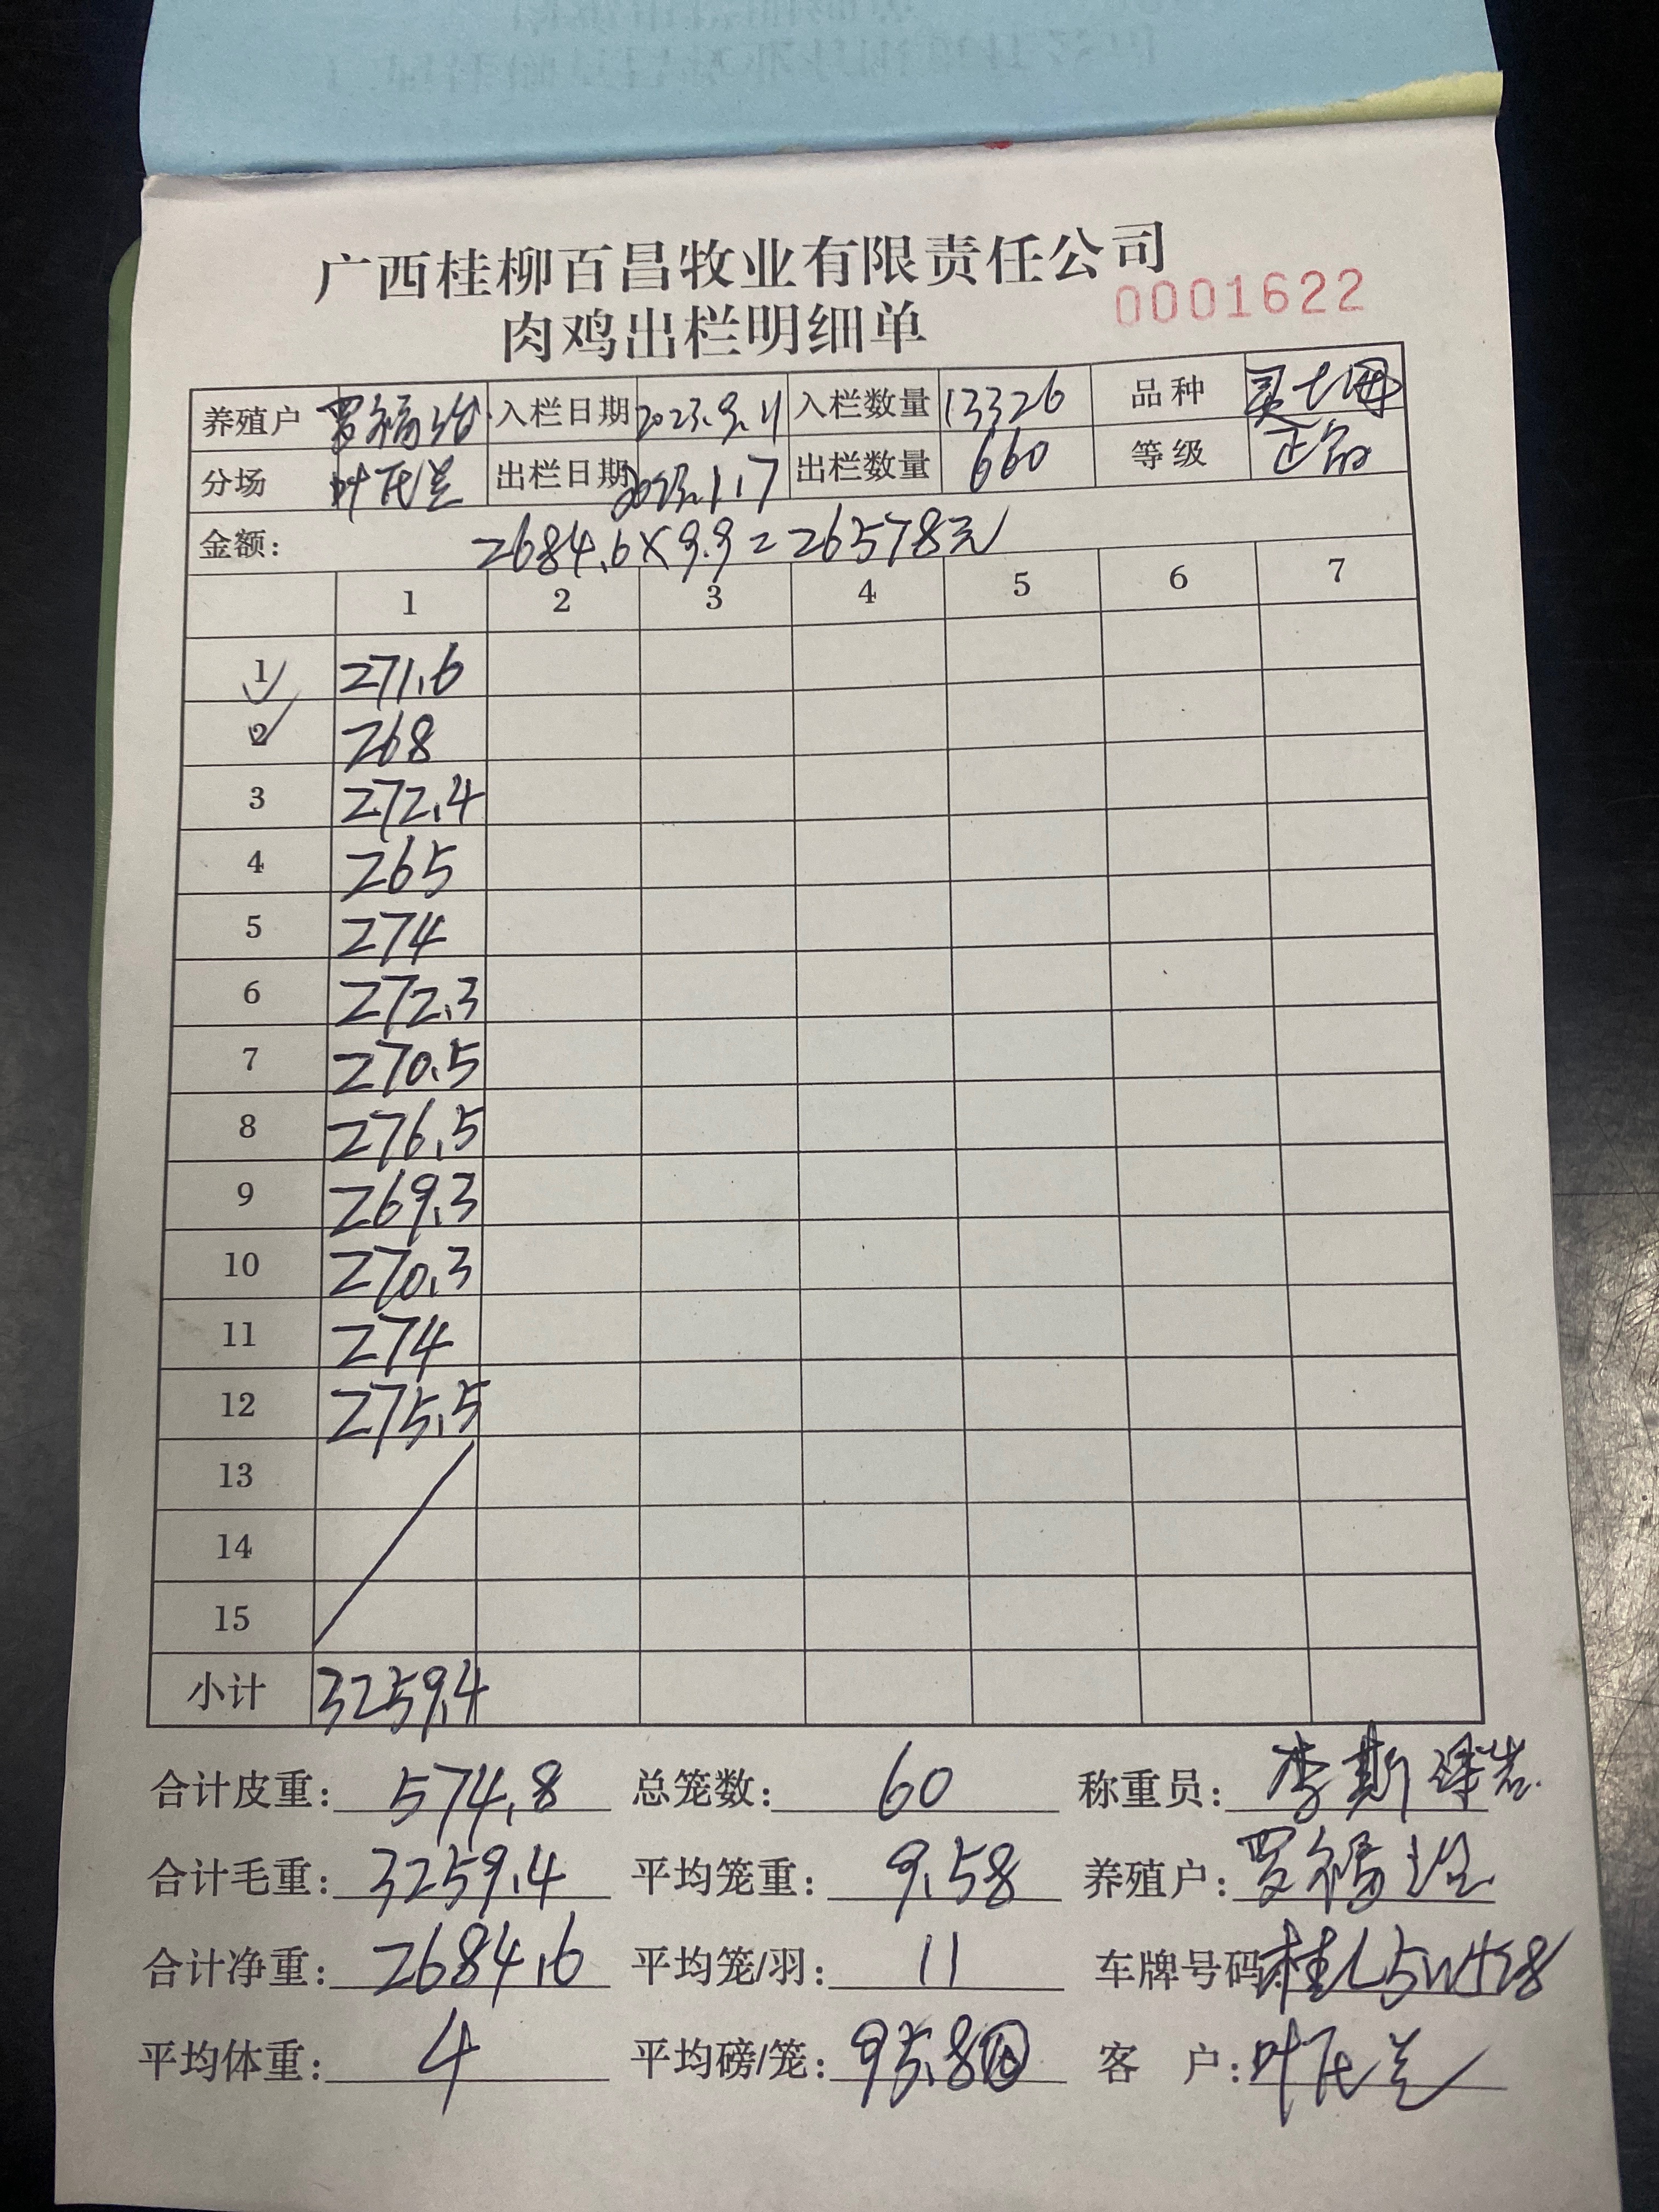 广西桂柳百昌牧业有限责任公司
肉鸡出栏明细单
0001622
养殖户 罗福 入栏日期 2023.9.11 入栏数量 13326 品种
分场 叶 出栏日期 出栏数量 660 等级 正品
金额: 2684.6×9.9=26578元
1 2 3 4 5 6 7
1 271.6
2 268
3 272.4
4 265
5 274
6 272.3
7 270.5
8 276.5
9 269.3
10 270.3
11 274
12 275.5
13
14
15
小计 3259.4
合计皮重: 574.8 总笼数: 60 称重员: 李斯
合计毛重: 3259.4 平均笼重: 9.58 养殖户: 罗福
合计净重: 2684.6 平均笼/羽: 11 车牌号码:
平均体重: 4 平均磅/笼: 95.8 客 户: 叶